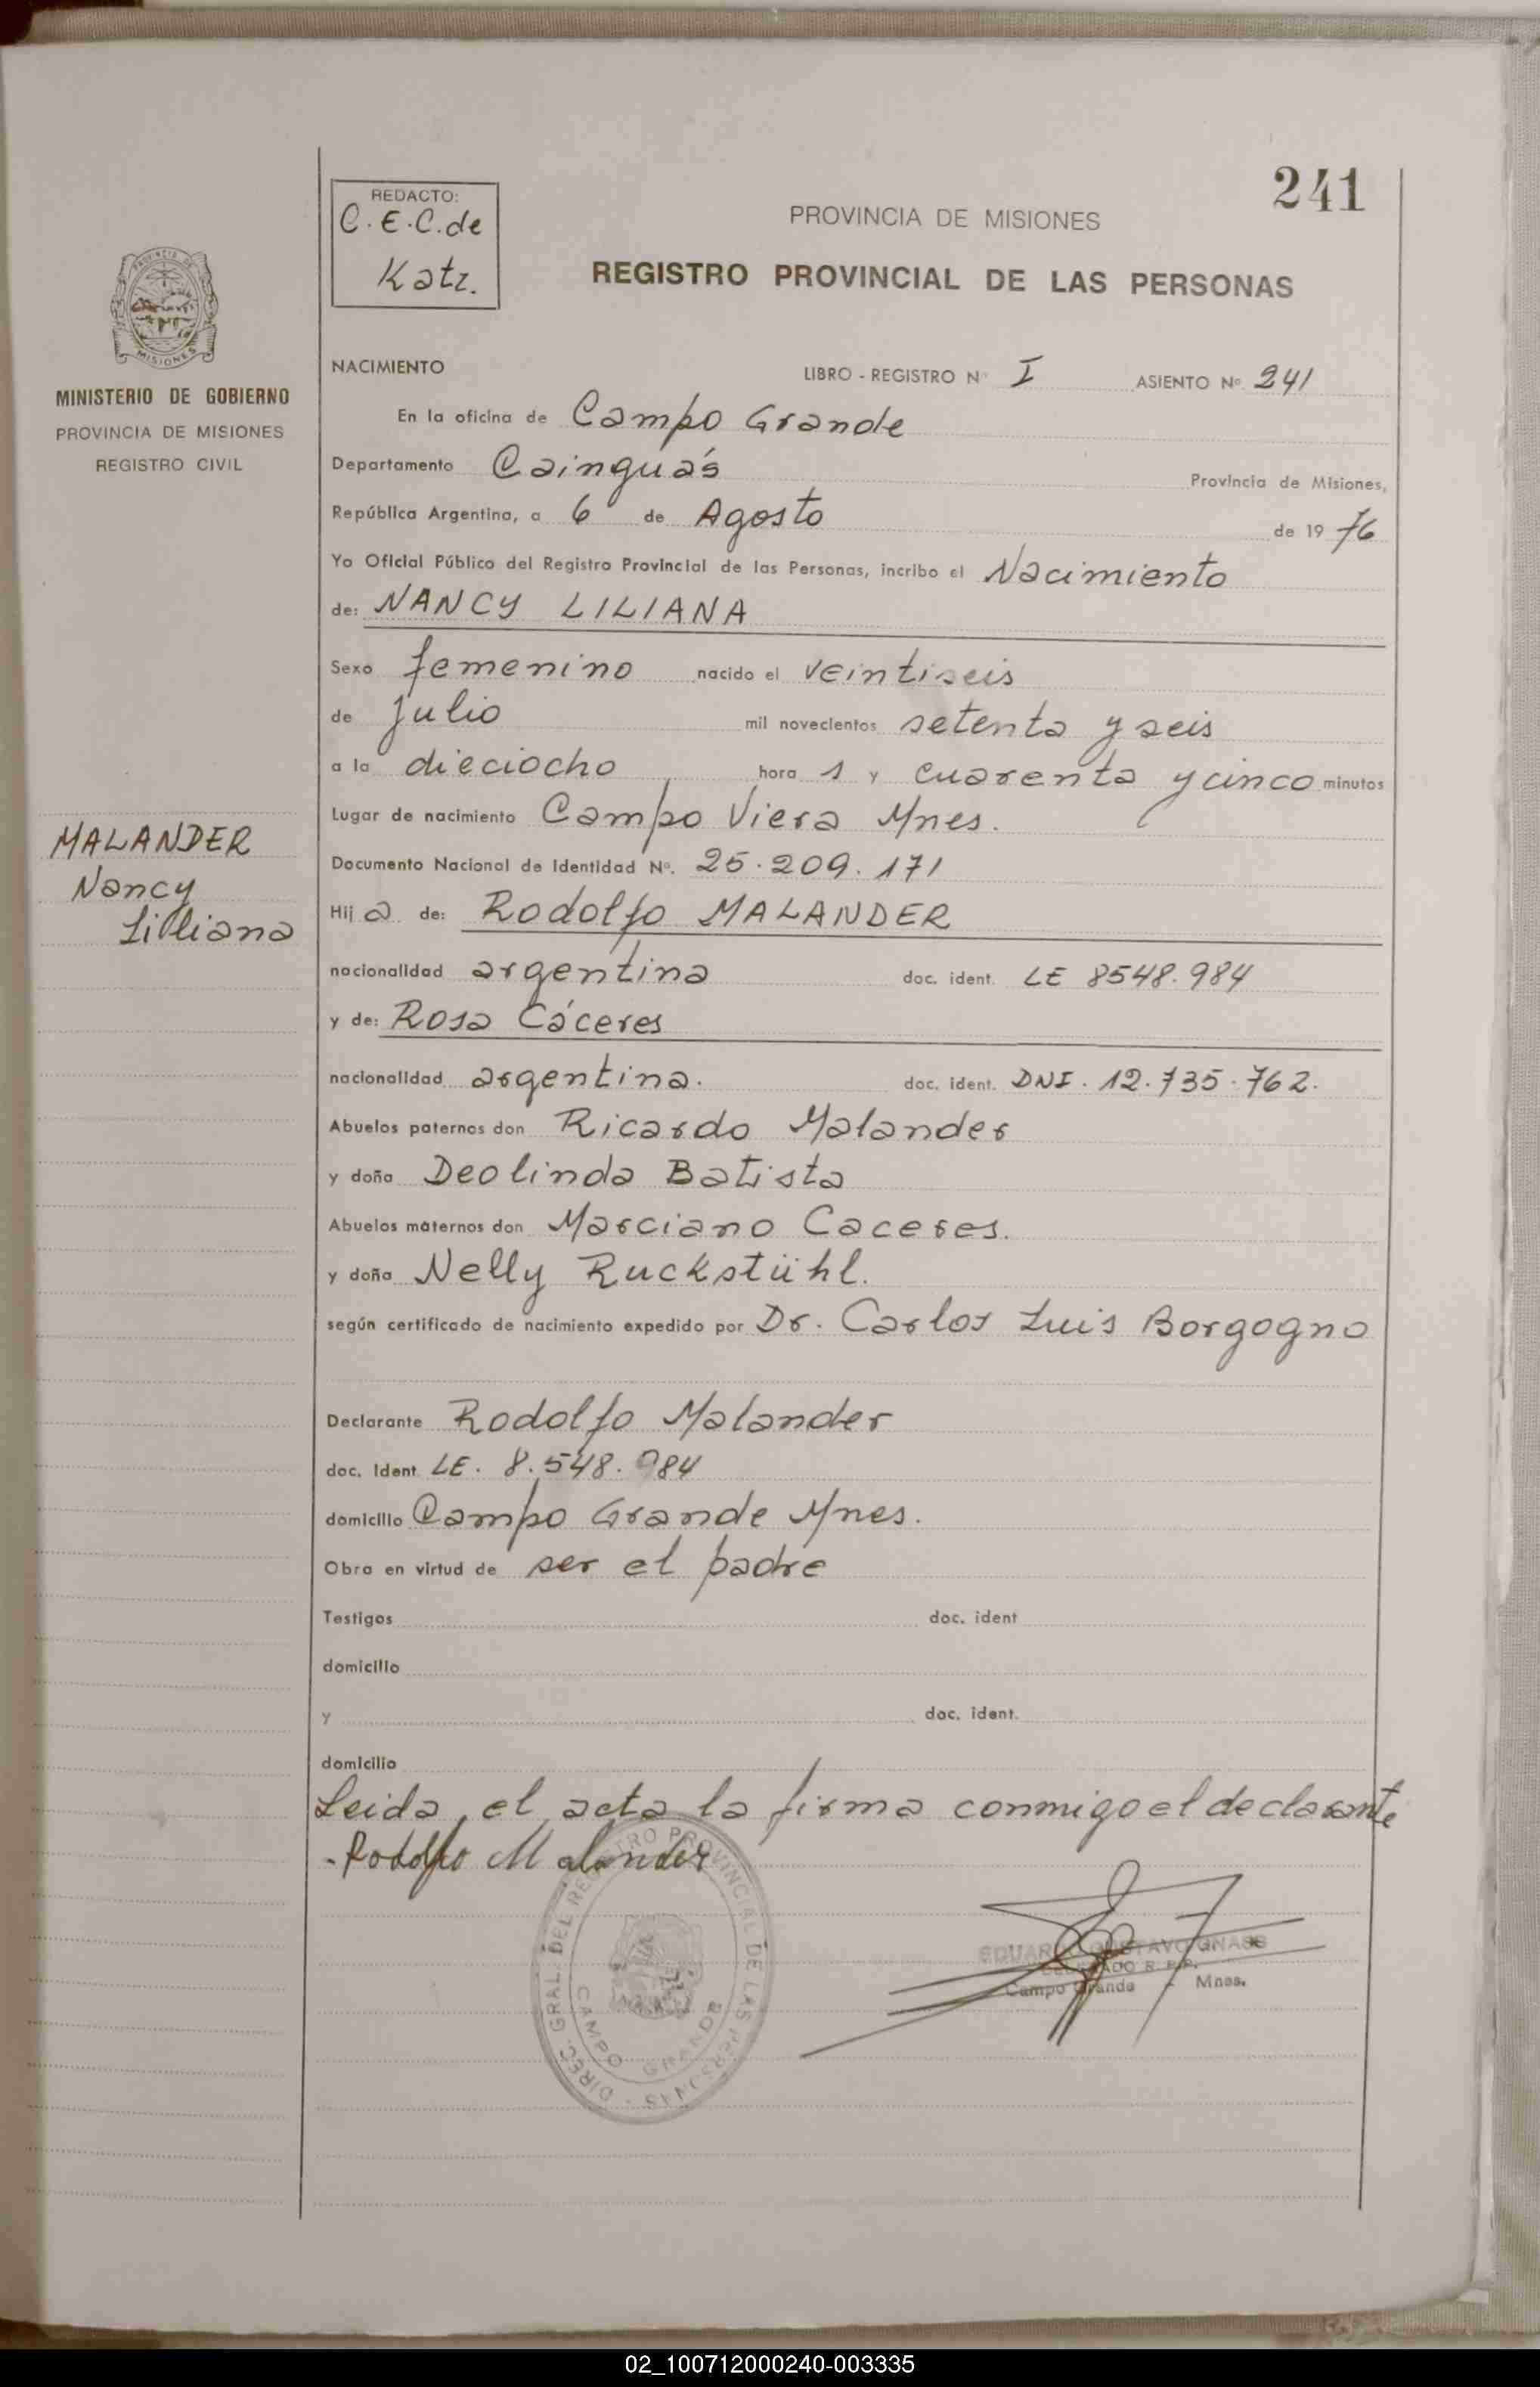 241
REDACTO:
C.E.C.de
Katz.
PROVINCIA DE MISIONES
REGISTRO PROVINCIAL DE LAS PERSONAS
PROVINCIA DE
MISIONES
MINISTERIO DE GOBIERNO
PROVINCIA DE MISIONES
REGISTRO CIVIL
MALANDER
Nancy
Liliana
NACIMIENTO LIBRO - REGISTRO Nº I ASIENTO Nº 241
En la oficina de Campo Grande
Departamento Cainguás Provincia de Misiones,
República Argentina, a 6 de Agosto de 19 76
Yo Oficial Público del Registro Provincial de las Personas, incribo el Nacimiento
de: NANCY LILIANA
Sexo femenino nacido el veintiseis
de Julio mil novecientos setenta y seis
a la dieciocho hora s y cuarenta y cinco minutos
Lugar de nacimiento Campo Viera Mnes.
Documento Nacional de Identidad Nº. 25.209.171
Hij a de: Rodolfo MALANDER
nacionalidad argentina doc. ident. LE 8548.984
y de: Rosa Cáceres
nacionalidad argentina. doc. ident. DNI. 12.735.762.
Abuelos paternos don Ricardo Malander
y doña Deolinda Batista
Abuelos maternos don Marciano Caceres.
y doña Nelly Ruckstühl.
según certificado de nacimiento expedido por Dr. Carlos Luis Borgogno
Declarante Rodolfo Malander
doc. Ident LE. 8.548.984
domicilio Campo Grande Mnes.
Obra en virtud de ser el padre
Testigos doc. ident
domicilio
y doc. ident.
domicilio
Leida, el acta la firma conmigo el declarante
- Rodolfo Malander
DIREC. GRAL. DEL REGISTRO PROVINCIAL DE LAS PERSONAS
CAMPO GRANDE
EDUARDO GUSTAVO GNASS
DELEGADO R. P. P.
Campo Grande - Mnes.
02_100712000240-003335